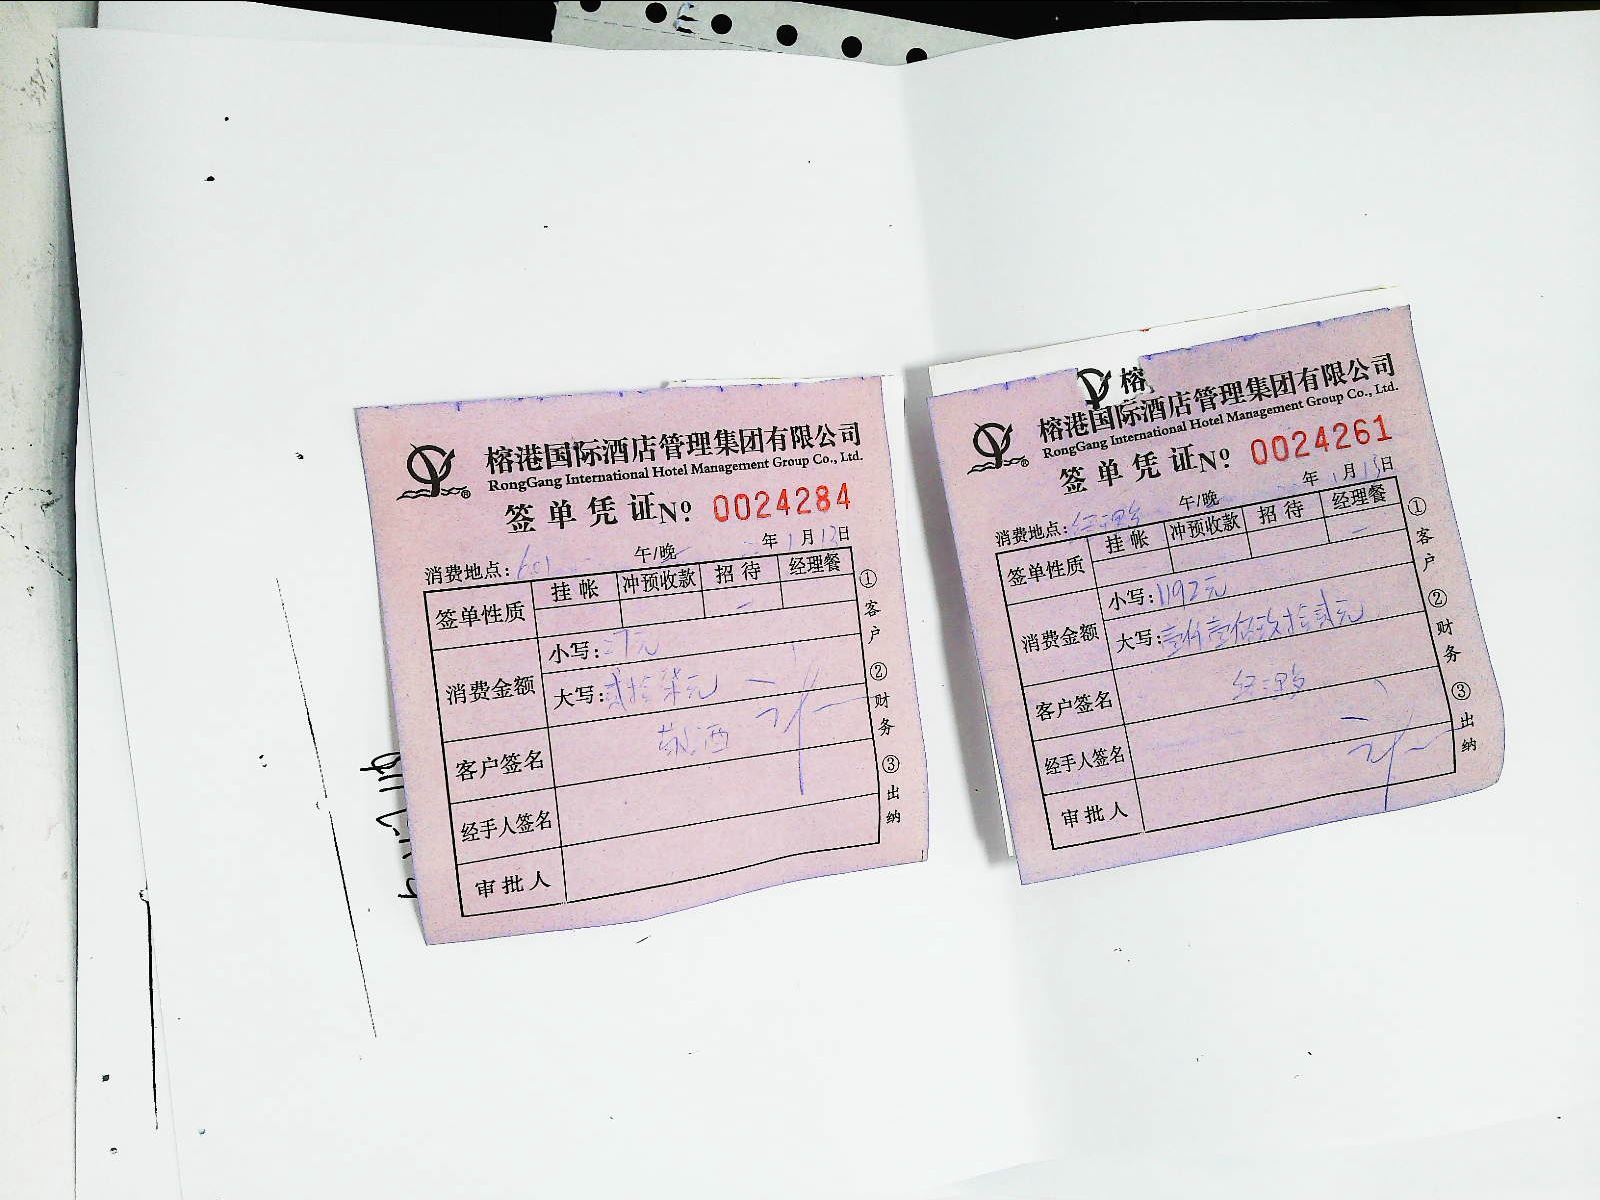 榕港国际酒店管理集团有限公司
RongGang International Hotel Management Group Co., Ltd.
签单凭证No 0024284
午/晚 年1月13日
消费地点:601
签单性质 挂帐 冲预收款 招待 经理餐
消费金额 小写:27元
大写:贰拾柒元
客户签名 敬酒
经手人签名
审批人
①客户 ②财务 ③出纳
榕
榕港国际酒店管理集团有限公司
RongGang International Hotel Management Group Co., Ltd.
签单凭证No 0024261
午/晚 年1月13日
消费地点:经理餐
签单性质 挂帐 冲预收款 招待 经理餐
消费金额 小写:1192元
大写:壹仟壹佰玖拾贰元
客户签名 经理餐
经手人签名
审批人
①客户 ②财务 ③出纳